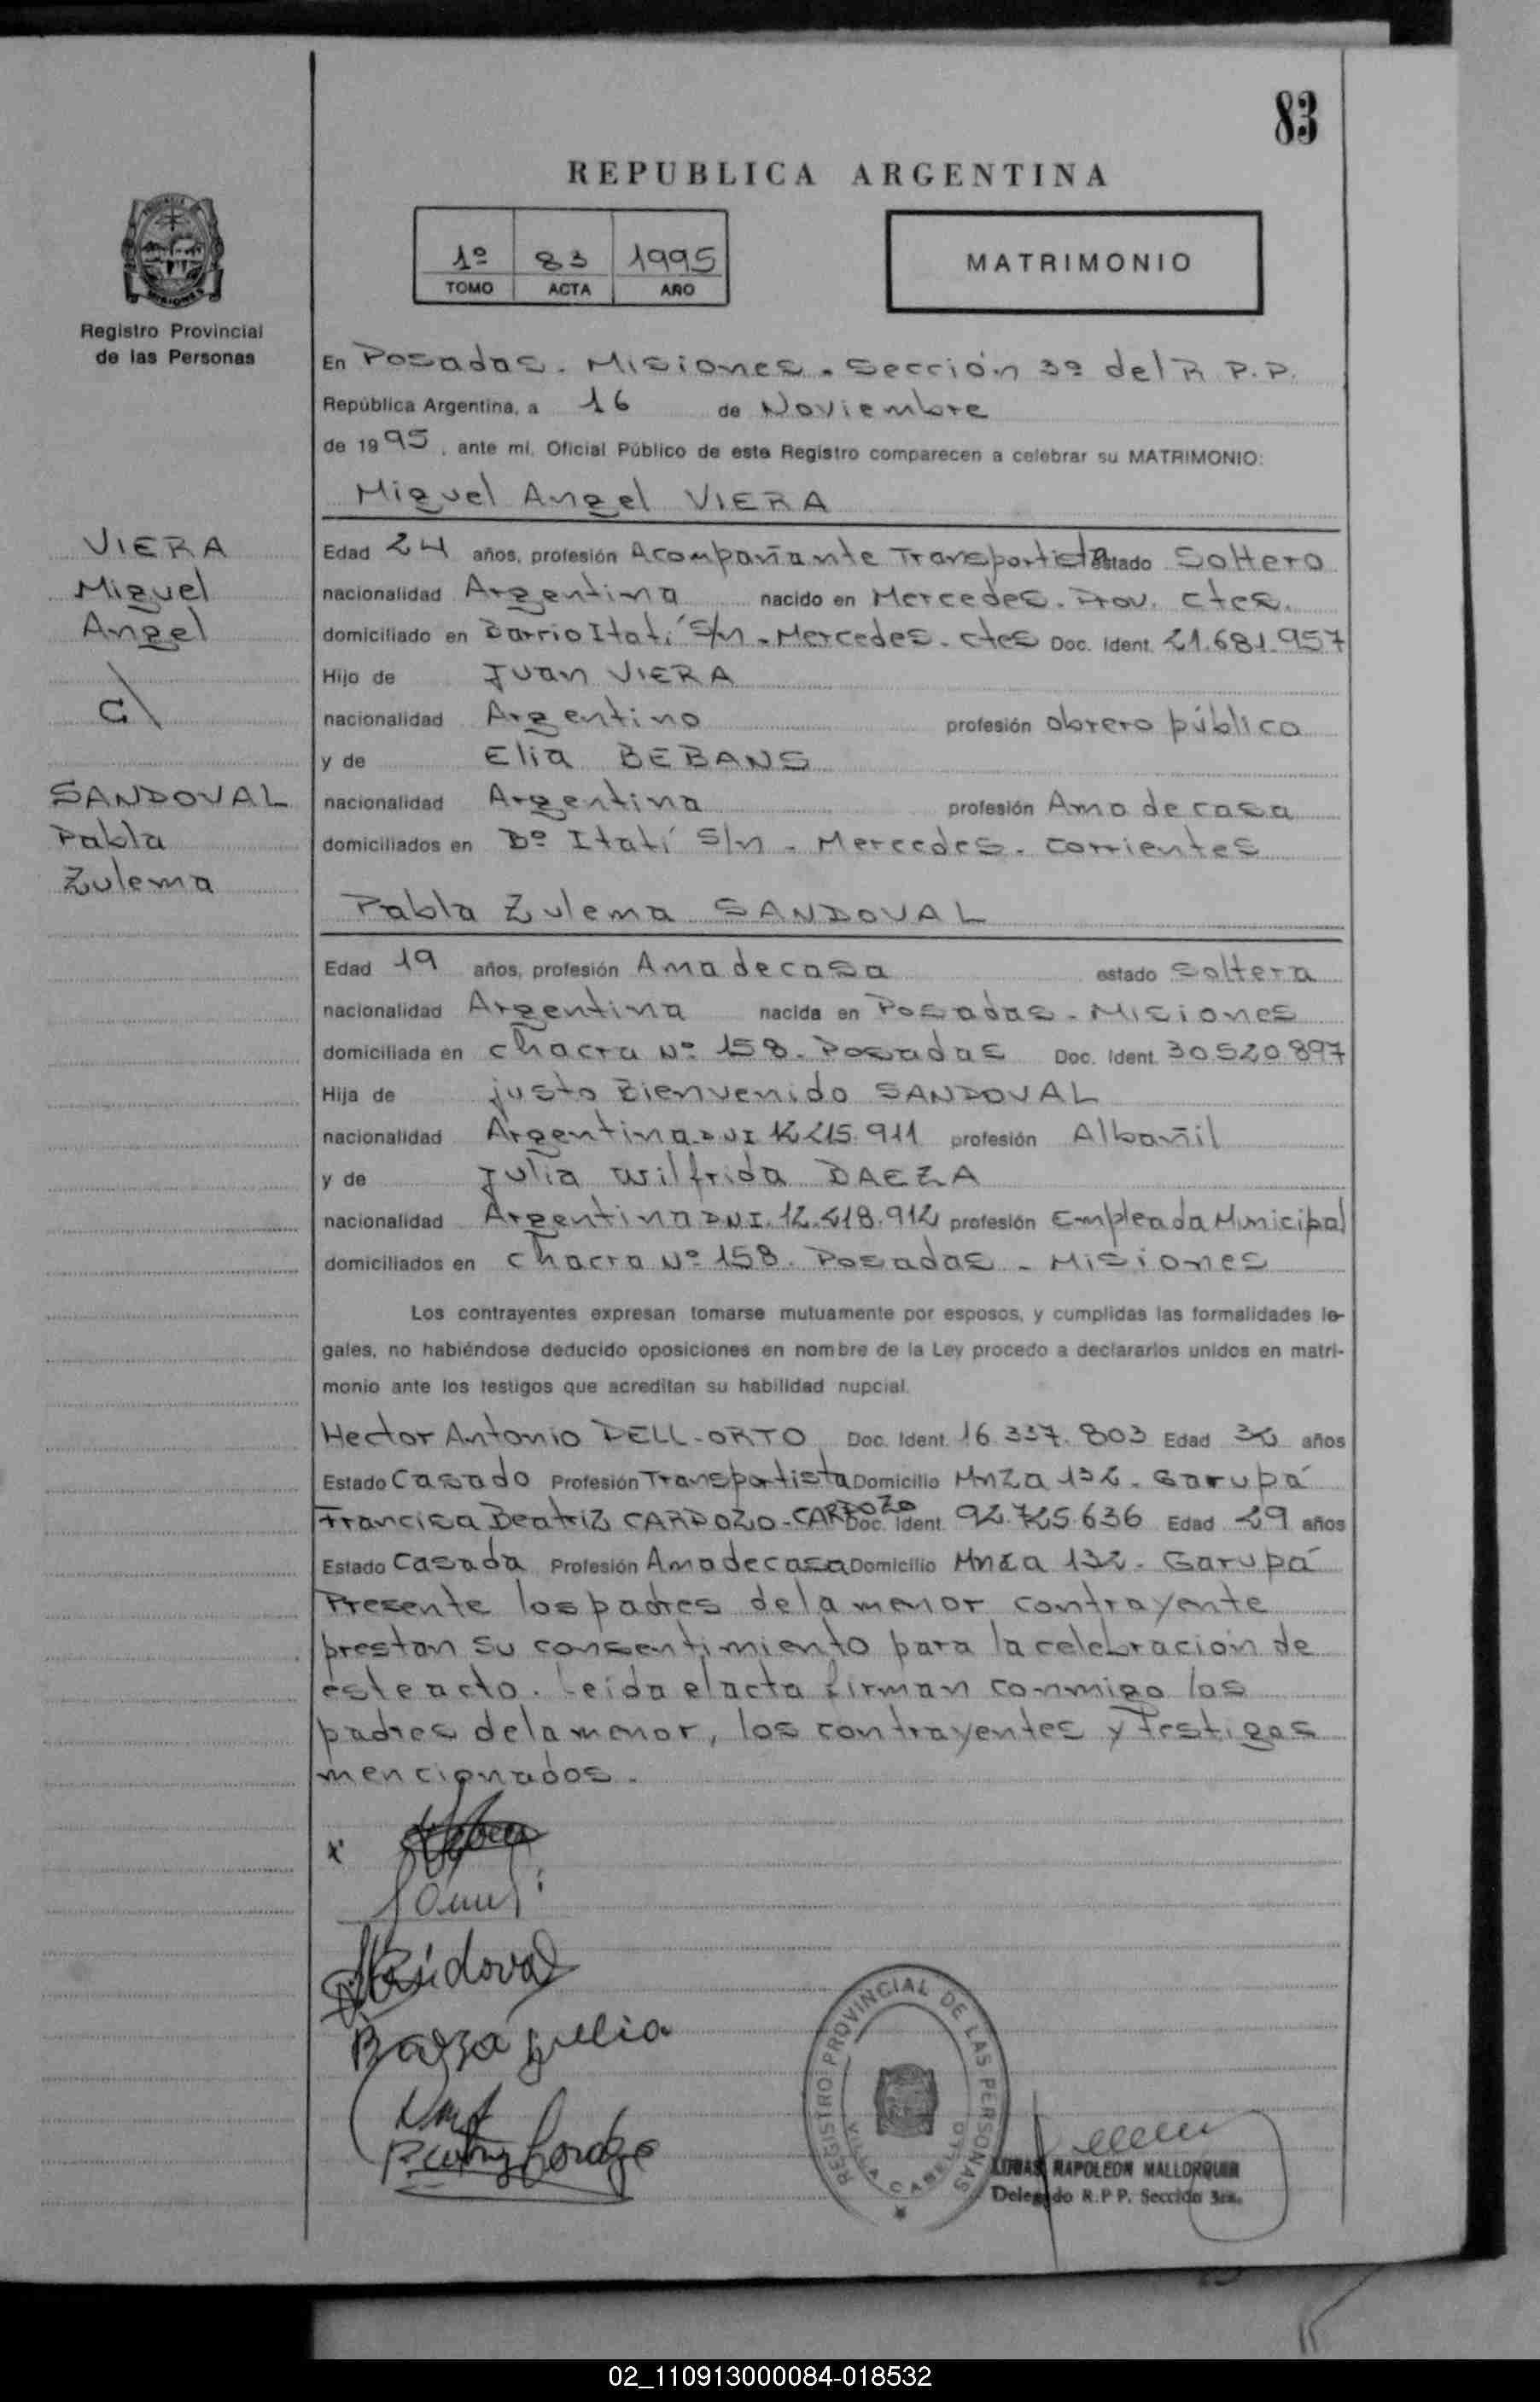 83
REPUBLICA ARGENTINA
1º 83 1995
TOMO ACTA AÑO
MATRIMONIO
Registro Provincial
de las Personas
En Posadas. Misiones. Sección 3º del R.P.P.
República Argentina, a 16 de Noviembre
de 1995, ante mí, Oficial Público de este Registro comparecen a celebrar su MATRIMONIO:
Miguel Angel VIERA
VIERA
Miguel
Angel
C\
SANDOVAL
Pabla
Zulema
Edad 24 años, profesión Acompañante Transportista estado Soltero
nacionalidad Argentina nacido en Mercedes. Prov. Ctes.
domiciliado en Barrio Itatí S/n - Mercedes - ctes Doc. Ident. 21.681.957
Hijo de Juan VIERA
nacionalidad Argentino profesión obrero público
y de Elia BEBANS
nacionalidad Argentina profesión Ama de casa
domiciliados en Bº Itatí S/n - Mercedes - Corrientes
Pabla Zulema SANDOVAL
Edad 19 años, profesión Ama de casa estado Soltera
nacionalidad Argentina nacida en Posadas - Misiones
domiciliada en Chacra Nº 158. Posadas Doc. Ident. 30.520.897
Hija de justo Bienvenido SANDOVAL
nacionalidad Argentina DNI 12.215.911 profesión Albañil
y de Julia Wilfrida BAEZA
nacionalidad Argentina DNI. 12.418.912 profesión Empleada Municipal
domiciliados en Chacra Nº 158. Posadas - Misiones
Los contrayentes expresan tomarse mutuamente por esposos, y cumplidas las formalidades le-
gales, no habiéndose deducido oposiciones en nombre de la Ley procedo a declararlos unidos en matri-
monio ante los testigos que acreditan su habilidad nupcial.
Hector Antonio DELL-ORTO Doc. Ident. 16.337.803 Edad años
Estado Casado Profesión Transportista Domicilio Mnza 132 - Garupá
Francisca Beatriz CARDOZO-CARDOZO Doc. Ident. 92.725.636 Edad 29 años
Estado Casada Profesión Ama de casa Domicilio Mnza 132 - Garupá
Presente los padres de la menor contrayente
prestan su consentimiento para la celebración de
este acto. Leida el acta firman conmigo los
padres de la menor, los contrayentes y Testigos
mencionados.
x
Sandoval
Baeza Julia
REGISTRO PROVINCIAL DE LAS PERSONAS
VILLA CABELLO
LUCAS NAPOLEON MALLORQUIN
Delegado R.P.P. Sección 3ra.
02_110913000084-018532